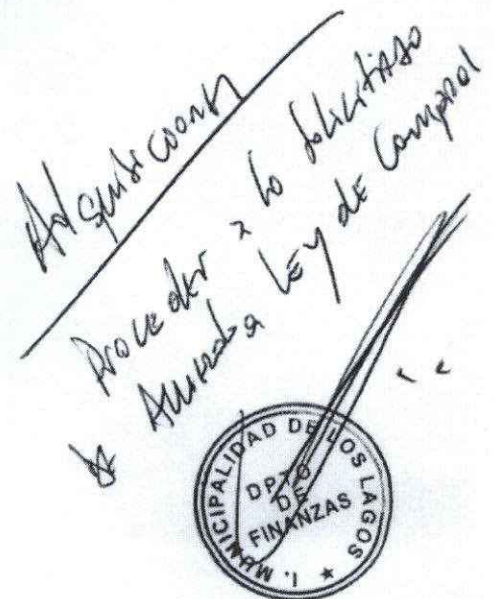 Adquisiciones
Proceder a lo solicitado
de Acuerdo a Ley de Compras
I. MUNICIPALIDAD DE LOS LAGOS
DPTO
DE
FINANZAS